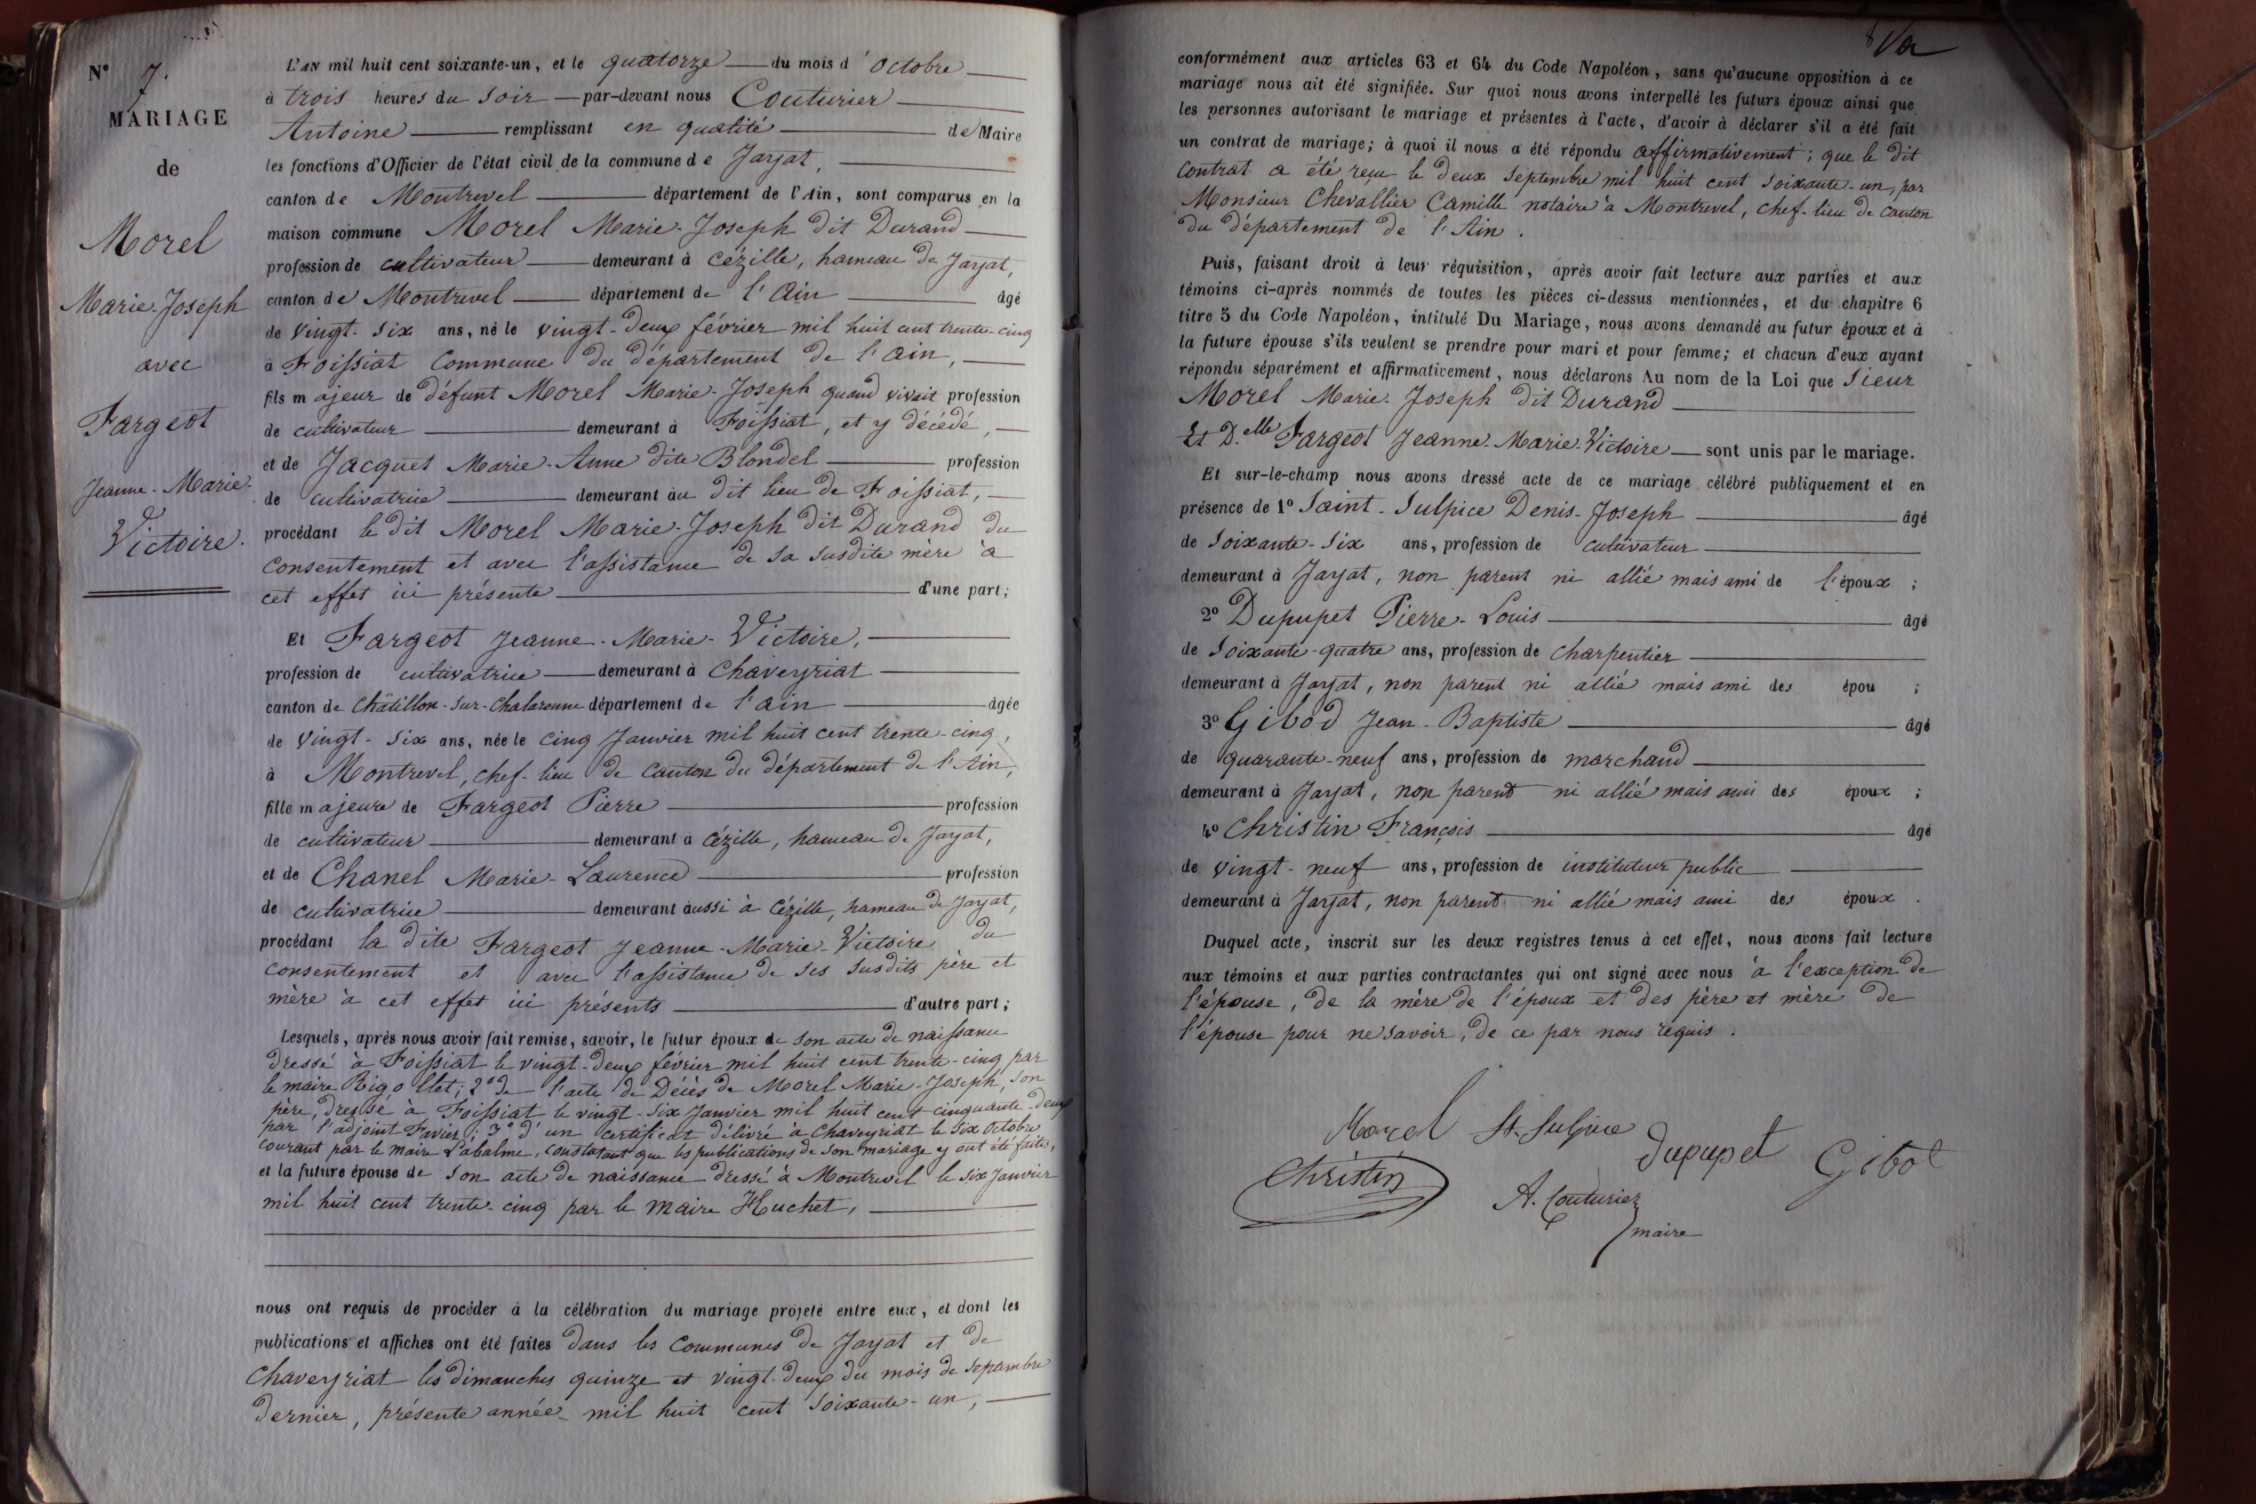 N° 7.
MARIAGE
de
Morel
Marie-Joseph
avec
Fargeot
Jeanne-Marie-
Victoire.
L'AN mil huit cent soixante-un, et le quatorze du mois d'octobre
à trois heures du soir par-devant nous Couturier
Antoine remplissant en qualité de Maire
les fonctions d'Officier de l'état civil de la commune de Jayat,
canton de Montrevel département de l'Ain, sont comparus en la
maison commune Morel Marie-Joseph dit Durand
profession de cultivateur demeurant à Cézille, hameau de Jayat,
canton de Montrevel département de l'Ain âgé
de vingt-six ans, né le vingt-deux février mil huit cent trente-cinq
à Foissiat Commune du département de l'Ain,
fils majeur de défunt Morel Marie-Joseph quand vivait profession
de cultivateur demeurant à Foissiat, et y décédé,
et de Jacquet Marie-Anne dite Blondel profession
de cultivatrice demeurant au dit lieu de Foissiat,
procédant le dit Morel Marie-Joseph dit Durand du
consentement et avec l'assistance de sa susdite mère à
cet effet ici présente d'une part;
Et Fargeot Jeanne-Marie-Victoire,
profession de cultivatrice demeurant à Chaveyriat
canton de Châtillon-sur-Chalaronne département de l'ain âgée
de vingt-six ans, née le cinq Janvier mil huit cent trente-cinq,
à Montrevel, chef-lieu de Canton du département de l'Ain,
fille majeure de Fargeot Pierre profession
de cultivateur demeurant à Cézille, hameau de Jayat,
et de Chanel Marie-Laurence profession
de cultivatrice demeurant aussi à Cézille, hameau de Jayat,
procédant la dite Fargeot Jeanne-Marie-Victoire du
consentement et avec l'assistance de ses susdits père et
mère à cet effet ici présents d'autre part;
Lesquels, après nous avoir fait remise, savoir, le futur époux de son acte de naissance
dressé à Foissiat le vingt-deux février mil huit cent trente-cinq par
le maire Rigollet; 2° de l'acte de Décès de Morel Marie-Joseph, son
père, dressé à Foissiat le vingt-six Janvier mil huit cent cinquante-deux
par l'adjoint Favier; 3° d'un certificat délivré à Chaveyriat le six Octobre
courant par le maire Labalme, constatant que les publications de son mariage y ont été faites,
et la future épouse de son acte de naissance dressé à Montrevel le six Janvier
mil huit cent trente-cinq par le maire Huchet,
nous ont requis de procéder à la célébration du mariage projeté entre eux, et dont les
publications et affiches ont été faites dans les Communes de Jayat et de
Chaveyriat les dimanches quinze et vingt-deux du mois de Sepambre
dernier, présente année mil huit cent soixante-un,
conformément aux articles 63 et 64 du Code Napoléon, sans qu'aucune opposition à ce
mariage nous ait été signifiée. Sur quoi nous avons interpellé les futurs époux ainsi que
les personnes autorisant le mariage et présentes à l'acte, d'avoir à déclarer s'il a été fait
un contrat de mariage; à quoi il nous a été répondu affirmativement; que le dit
contrat a été reçu le deux septembre mil huit cent soixante-un, par
Monsieur Chevallier Camille notaire à Montrevel, chef-lieu de canton
du département de l'Ain.
Puis, faisant droit à leur réquisition, après avoir fait lecture aux parties et aux
témoins ci-après nommés de toutes les pièces ci-dessus mentionnées, et du chapitre 6
titre 5 du Code Napoléon, intitulé Du Mariage, nous avons demandé au futur époux et à
la future épouse s'ils veulent se prendre pour mari et pour femme; et chacun d'eux ayant
répondu séparément et affirmativement, nous déclarons Au nom de la Loi que Sieur
Morel Marie-Joseph dit Durand
Et D.elle Fargeot Jeanne-Marie-Victoire sont unis par le mariage.
Et sur-le-champ nous avons dressé acte de ce mariage célébré publiquement et en
présence de 1° Saint-Sulpice Denis-Joseph âgé
de soixante-six ans, profession de cultivateur
demeurant à Jayat, non parent ni allié mais ami de l'époux;
2° Dupupet Pierre-Louis âgé
de soixante-quatre ans, profession de charpentier
demeurant à Jayat, non parent ni allié mais ami des épou;
3° Gibod Jean-Baptiste âgé
de quarante-neuf ans, profession de marchand
demeurant à Jayat, non parent ni allié mais ami des époux;
4° Christin François âgé
de vingt-neuf ans, profession de instituteur public
demeurant à Jayat, non parent ni allié mais ami des époux.
Duquel acte, inscrit sur les deux registres tenus à cet effet, nous avons fait lecture
aux témoins et aux parties contractantes qui ont signé avec nous à l'exception de
l'épouse, de la mère de l'époux et des père et mère de
l'épouse pour ne savoir, de ce par nous requis.
Morel St-Sulpice Dupupet Gibod
Christin A. Couturier
maire